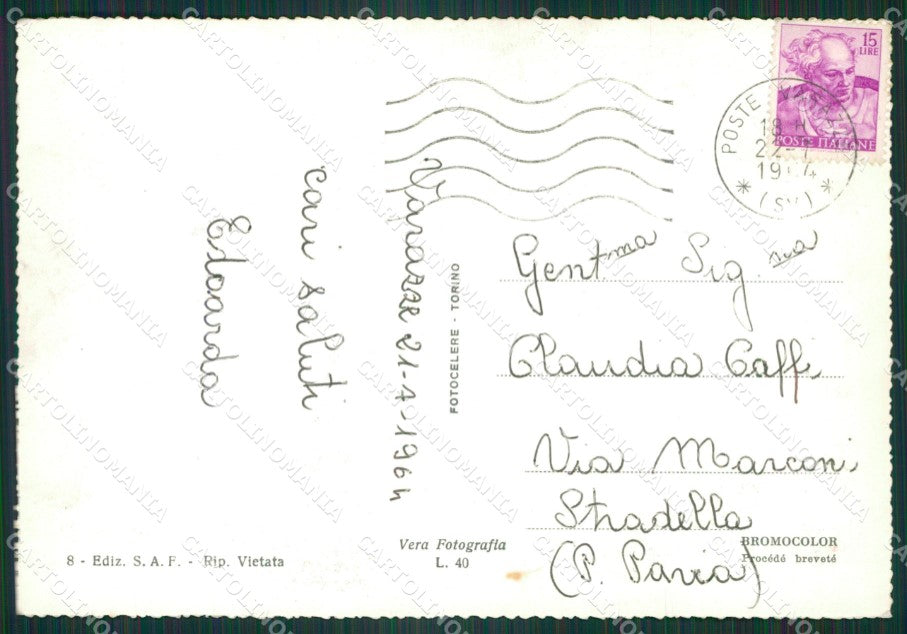 Varazze 21-1-1964
cari saluti
Edoarda
8 - Ediz. S. A. F. - Rip. Vietata
Vera Fotografia
L. 40
FOTOCELERE - TORINO
15
LIRE
POSTE ITALIANE
POSTE
18 H
1964
(SV)
Gent.ma Sig.na
Claudia Caffi
Via Marconi
Stradella
(P. Pavia)
BROMOCOLOR
Procédé breveté
CARTOLINOMANIA